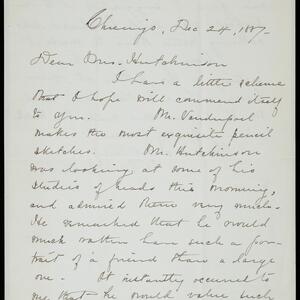 Chicago, Dec 24, 1887-
Dear Mrs. Hutchinson
I have a little scheme
that I hope will commend itself
to you. Mr. Vanderpoel
makes the most exquisite pencil
sketches. Mr. Hutchinson
was looking at some of his
studies of heads this morning,
and admired them very much.
He remarked that he would
much rather have such a por-
trait of a friend than a large
one. It instantly occurred to
me that he would value such